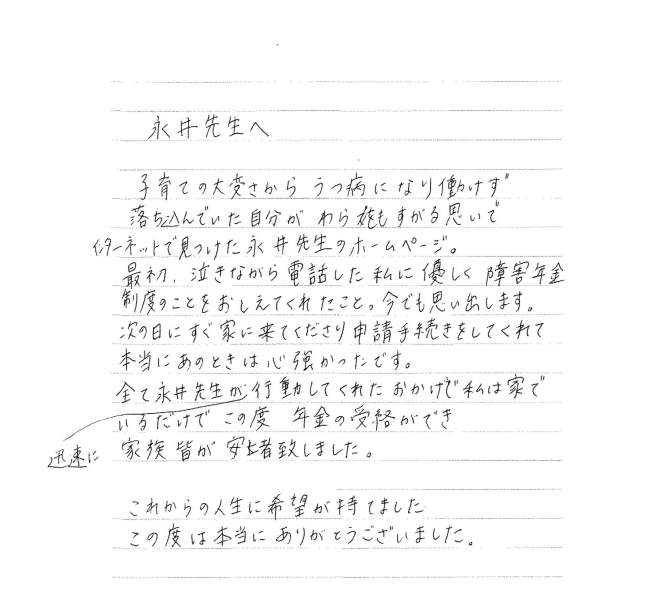 永井先生へ
子育ての大変さから うつ病になり働けず
落ち込んでいた自分が わらをもすがる思いで
インターネットで見つけた永井先生のホームページ。
最初、泣きながら電話した私に優しく障害年金
制度のことをおしえてくれたこと。今でも思い出します。
次の日にすぐ家に来てくださり申請手続きをしてくれて
本当にあのときは心強かったです。
全て永井先生が迅速に行動してくれたおかげで私は家で
いるだけで この度 年金の受給ができ
家族皆が安堵致しました。
これからの人生に希望が持てました
この度は本当にありがとうございました。